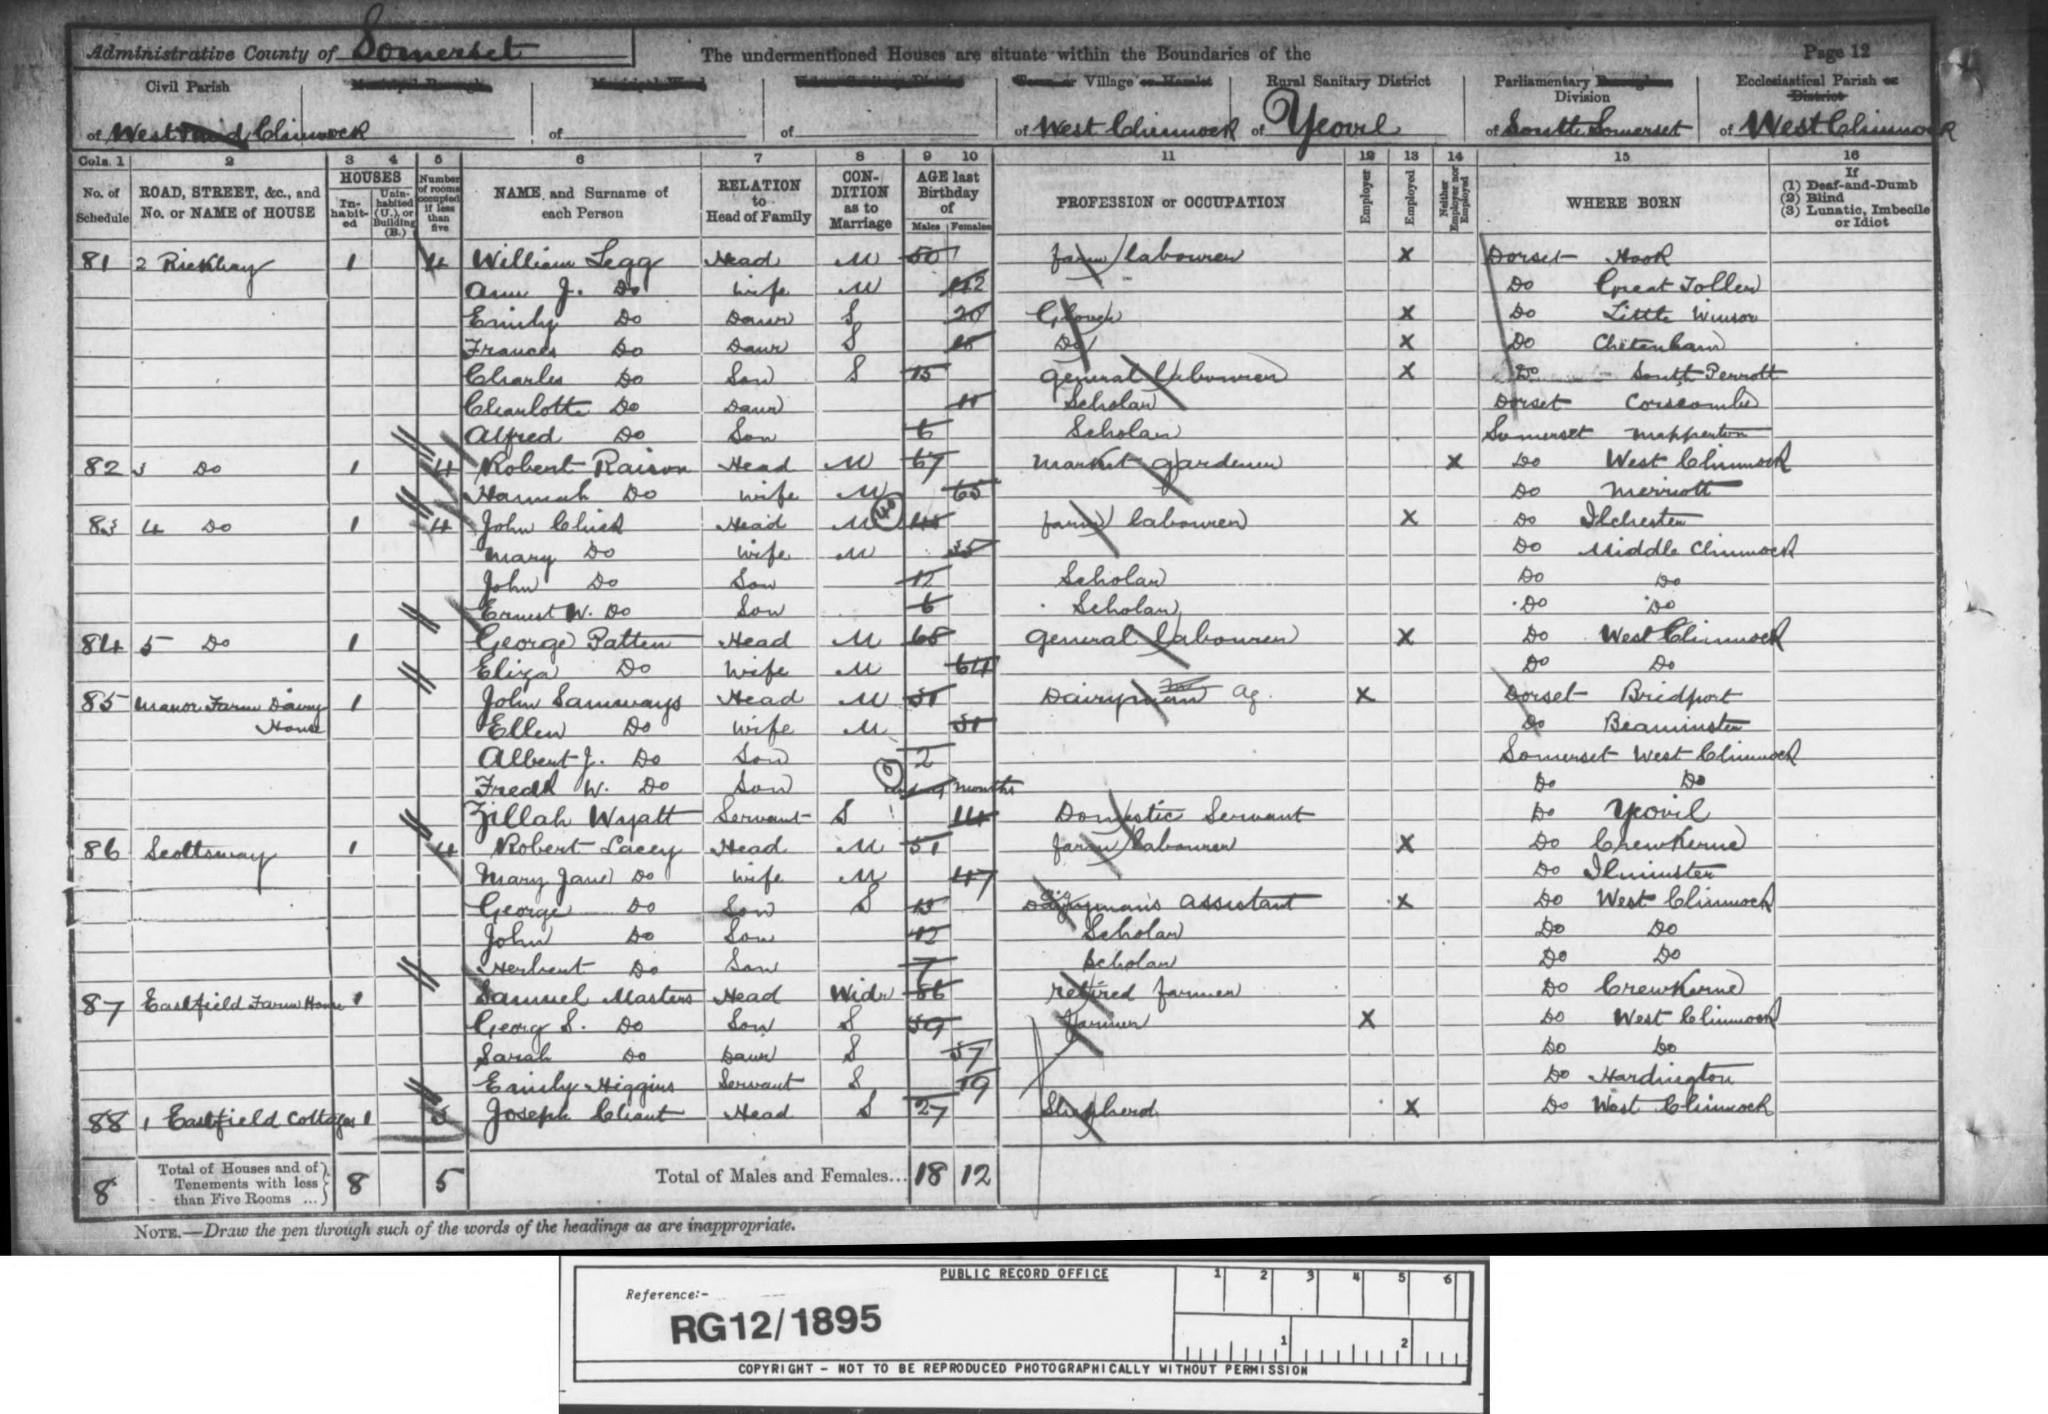 Administrative County of Somerset The undermentioned Houses are situate within the Boundaries of the Page 12
Civil Parish Municipal Borough Municipal Ward Urban Sanitary District Town or Village or Hamlet Rural Sanitary District Parliamentary Borough or Division Ecclesiastical Parish or District
of West Chinnock of of of West Chinnock of Yeovil of South Somerset of West Chinnock
Cols. 1 2 3 4 5 6 7 8 9 10 11 12 13 14 15 16
No. of Schedule ROAD, STREET, &c., and No. or NAME of HOUSE HOUSES Inhabited Uninhabited (U.), or Building (B.) Number of rooms occupied if less than five NAME and Surname of each Person RELATION to Head of Family CONDITION as to Marriage AGE last Birthday of Males Females PROFESSION or OCCUPATION Employer Employed Neither Employer nor Employed WHERE BORN If (1) Deaf-and-Dumb (2) Blind (3) Lunatic, Imbecile or Idiot
81 2 Rickhay 1 4 William Legg Head M 50 farm labourer X Dorset Hook
Ann J. Do Wife M 42 Do Great Toller
Emily Do Daur S 20 Glover X Do Little Winsor
Frances Do Daur S Do X Do Chetenham
Charles Do Son S 15 general labourer X Do South Perrott
Charlotte Do Daur 11 Scholar Dorset Corscombe
Alfred Do Son 6 Scholar Somerset Mapperton
82 3 Do 1 4 Robert Raison Head M 67 Market gardener X Do West Chinnock
Hannah Do Wife M 65 Do Merriott
83 4 Do 1 4 John Chick Head M 40 farm labourer X Do Ilchester
Mary Do Wife M 35 Do Middle Chinnock
John Do Son 12 Scholar Do Do
Ernest W. Do Son 6 Scholar Do Do
84 5 Do 1 George Patten Head M 68 General labourer X Do West Chinnock
Eliza Do Wife M 64 Do Do
85 Manor Farm Dairy House 1 John Samways Head M 31 Dairyman Ag. X Dorset Bridport
Ellen Do Wife M 31 Do Beaminster
Albert J. Do Son 2 Somerset West Chinnock
Fredk W. Do Son months Do Do
Zillah Wyatt Servant S 14 Domestic Servant Do Yeovil
86 Scottsway 1 4 Robert Lacey Head M 51 farm labourer X Do Crewkerne
Mary Jane Do Wife M 47 Do Ilminster
George Do Son S 15 Dairyman's assistant X Do West Chinnock
John Do Son 12 Scholar Do Do
Herbert Do Son 7 Scholar Do Do
87 Eastfield Farm House 1 Samuel Masters Head Widr 86 retired farmer Do Crewkerne
Georg S. Do Son S 39 farmer X Do West Chinnock
Sarah Do Daur S 37 Do Do
Emily Higgins Servant S 19 Do Hardington
88 1 Eastfield Cottages 1 3 Joseph Chant Head S 27 Shepherd X Do West Chinnock
8 Total of Houses and of Tenements with less than Five Rooms ... 8 5 Total of Males and Females... 18 12
NOTE.—Draw the pen through such of the words of the headings as are inappropriate.
PUBLIC RECORD OFFICE 1 2 3 4 5 6
Reference:-
RG12/1895
1 2
COPYRIGHT - NOT TO BE REPRODUCED PHOTOGRAPHICALLY WITHOUT PERMISSION